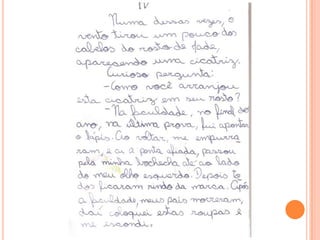 IV
Numa dessas vezes, o
vento tirou um pouco dos
cabelos do rosto de Jade,
aparecendo uma cicatriz.
Curioso pergunta:
-Como você arranjou
esta cicatriz em seu rosto?
-Na faculdade, no final do
ano, na última prova, fui apontar
o lápis. Ao voltar, me empurra
ram, e aí a ponta afiada, passou
pela minha bochecha até ao lado
do meu olho esquerdo. Depois to
dos ficaram rindo da marca. Após
a faculdade, meus pais morreram,
daí coloquei estas roupas e
me escondi.